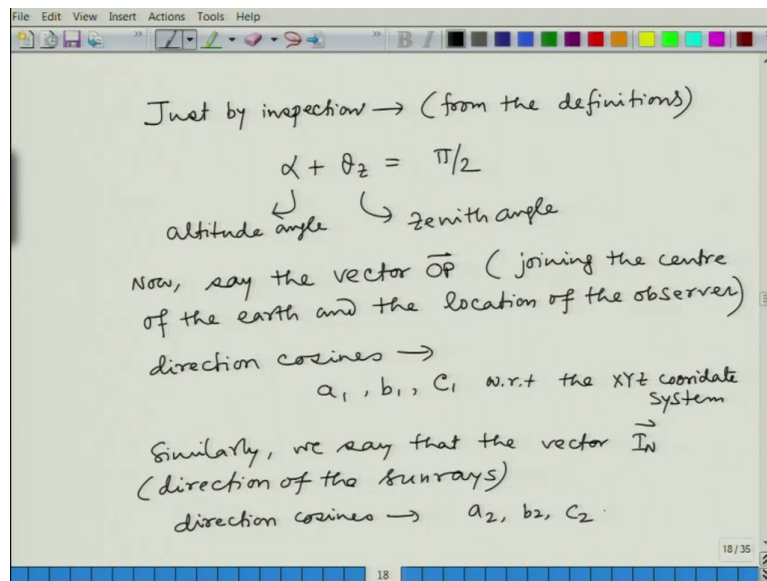 File Edit View Insert Actions Tools Help
B I
Just by inspection → (from the definitions)
α + θz = π/2
altitude angle zenith angle
Now, say the vector OP⃗ (joining the centre
of the earth and the location of the observer)
direction cosines →
a1, b1, c1 w.r.t the XYZ cooridate
system
Similarly, we say that the vector I⃗N
(direction of the sunrays)
direction cosines → a2, b2, c2.
18/35
18